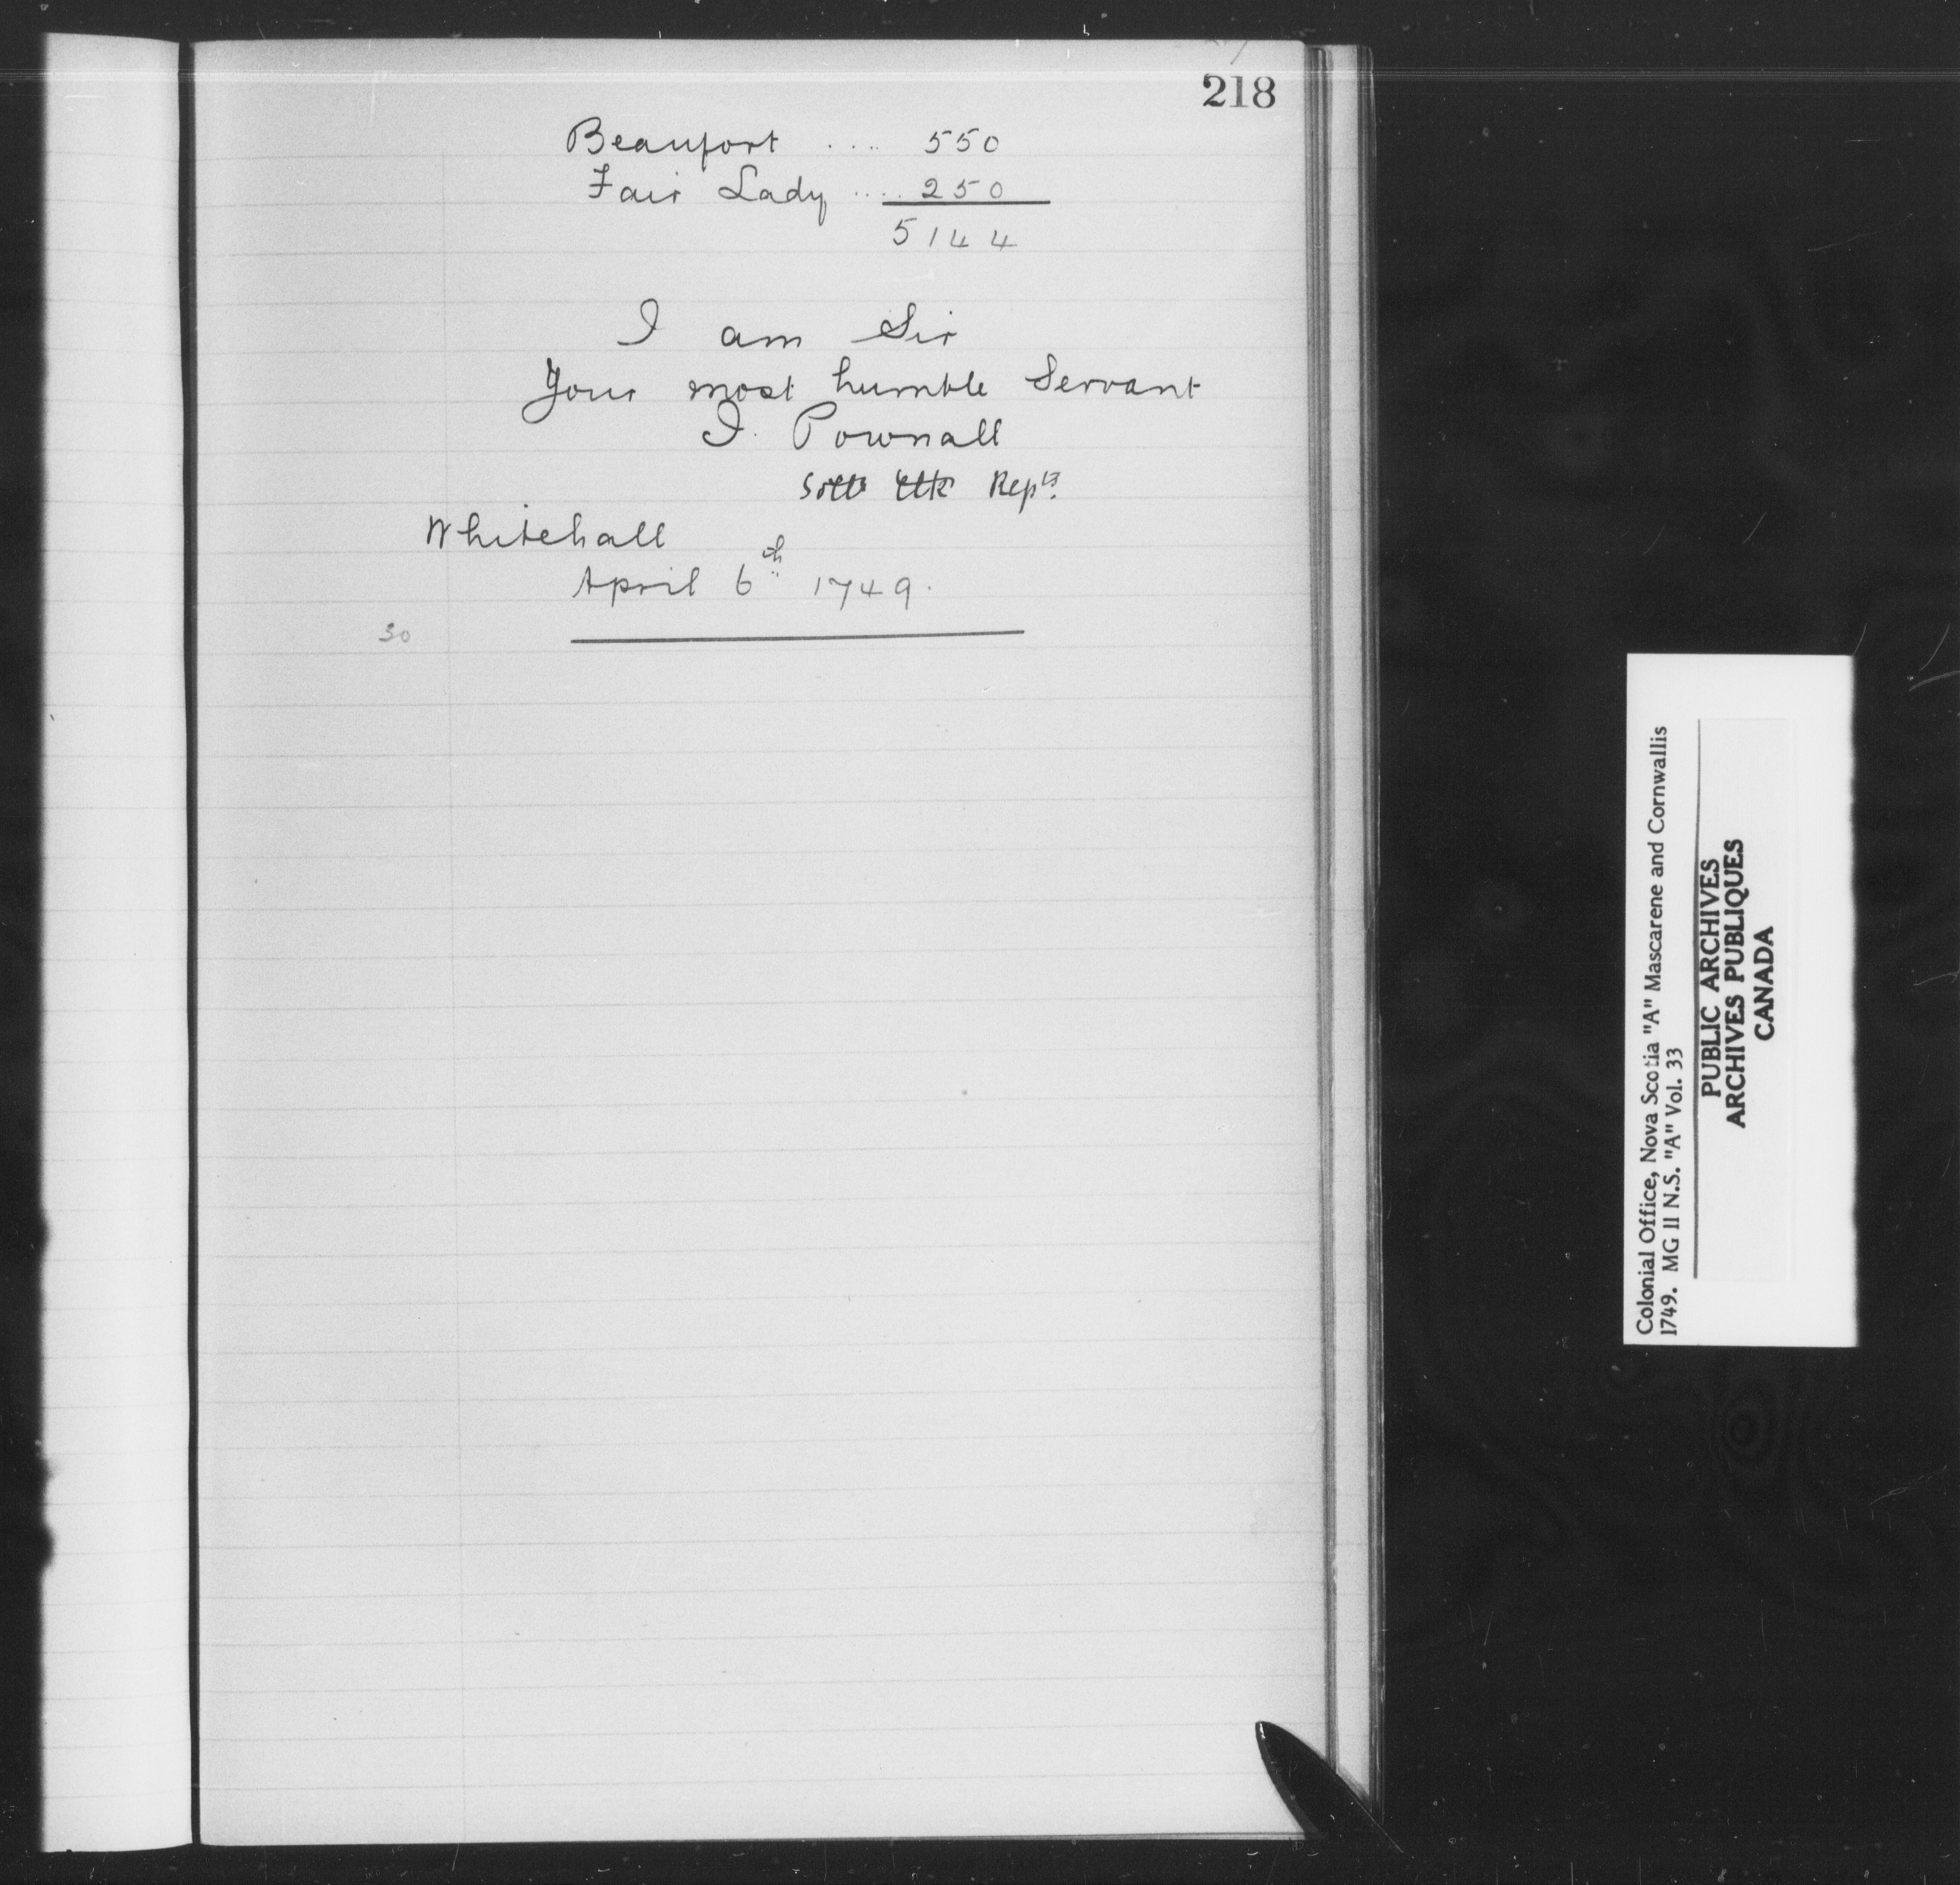 218
Beaufort .... 550
Fair Lady .... 250
5144
I am Sir
Your most humble Servant
J. Pownall
Rep^ts.
Whitehall
April 6th 1749.
30
Colonial Office, Nova Scotia "A" Mascarene and Cornwallis
1749. MG 11 N.S. "A" Vol. 33
PUBLIC ARCHIVES
ARCHIVES PUBLIQUES
CANADA